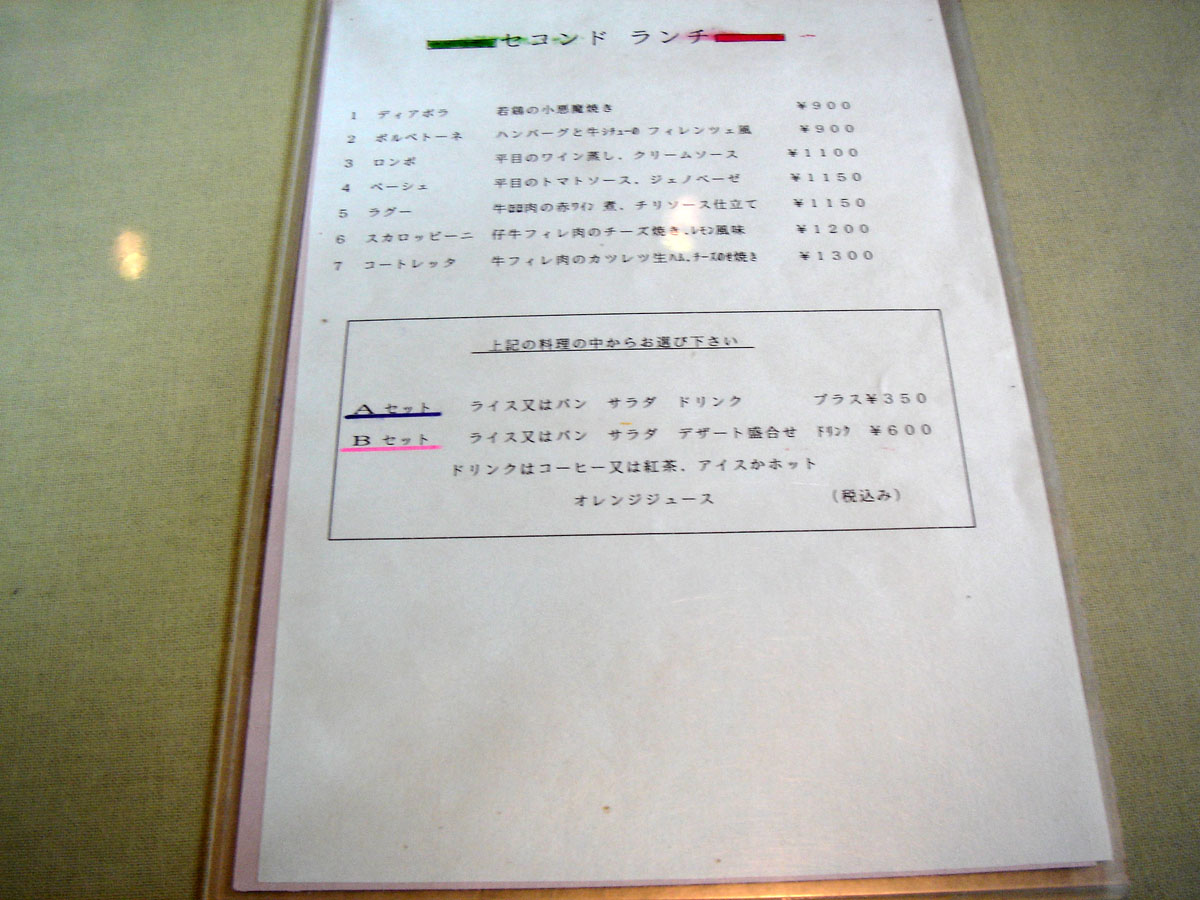 セコンド ランチ
1 ディアボラ 若鶏の小悪魔焼き ¥900
2 ポルペトーネ ハンバーグと牛ｼﾁｭｰの フィレンツェ風 ¥900
3 ロンボ 平目のワイン蒸し、クリームソース ¥1100
4 ペーシェ 平目のトマトソース、ジェノベーゼ ¥1150
5 ラグー 牛肉の赤ﾜｲﾝ 煮、チリソース仕立て ¥1150
6 スカロッピーニ 仔牛フィレ肉のチーズ焼き、ﾚﾓﾝ風味 ¥1200
7 コートレッタ 牛フィレ肉のカツレツ生ﾊﾑ、ﾁｰｽﾞのせ焼き ¥1300
上記の料理の中からお選び下さい
Aセット ライス又はパン サラダ ドリンク プラス¥350
Bセット ライス又はパン サラダ デザート盛合せ ﾄﾞﾘﾝｸ ¥600
ドリンクはコーヒー又は紅茶、アイスかホット
オレンジジュース （税込み）